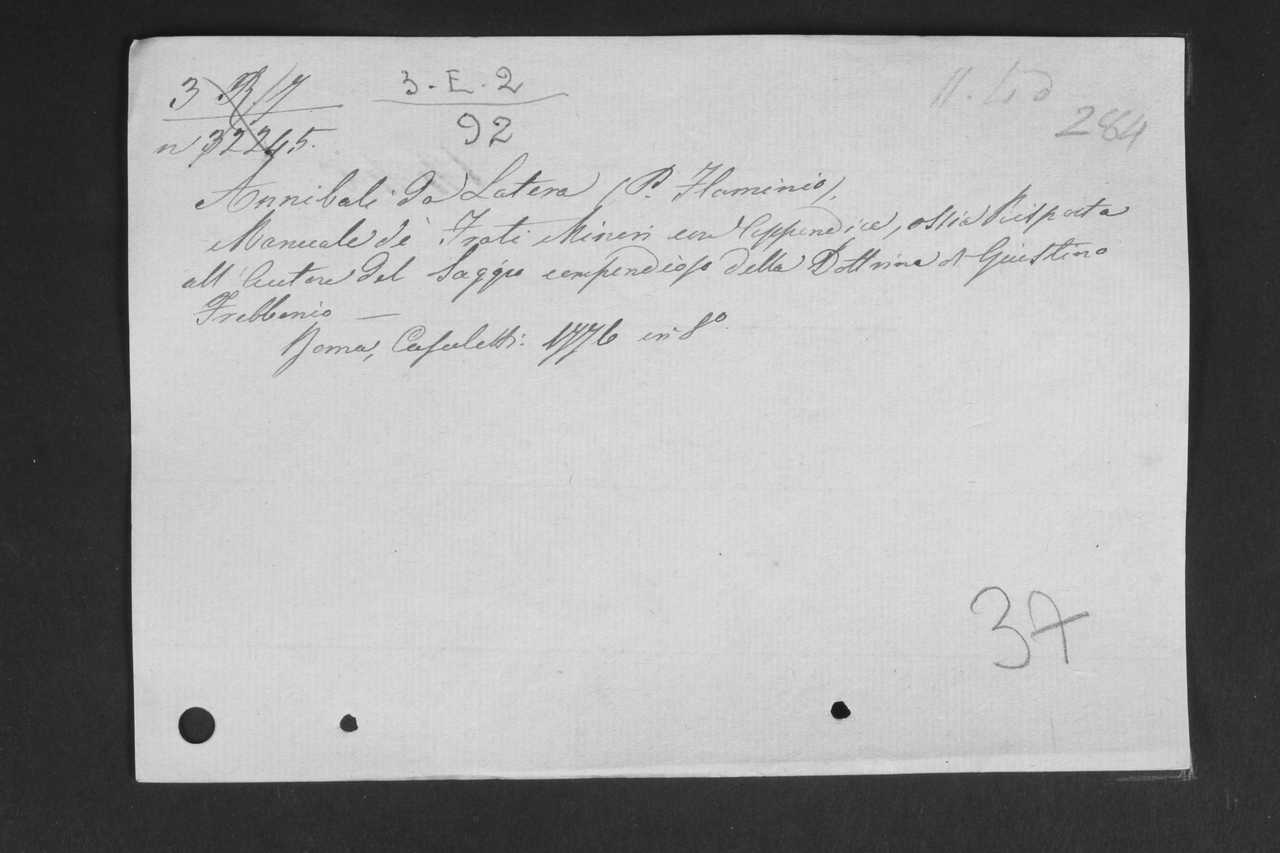 3 B/7
3.E.2
284
n 32245.
92
Annibali da Latera (P. Flaminio).
Manuale de' Frati Minori con Appendice, ossia Risposta
all'Autore del Saggio compendioso della Dottrina di Giustino
Febbonio —
Roma, Casaletti: 1776 in 8º
37